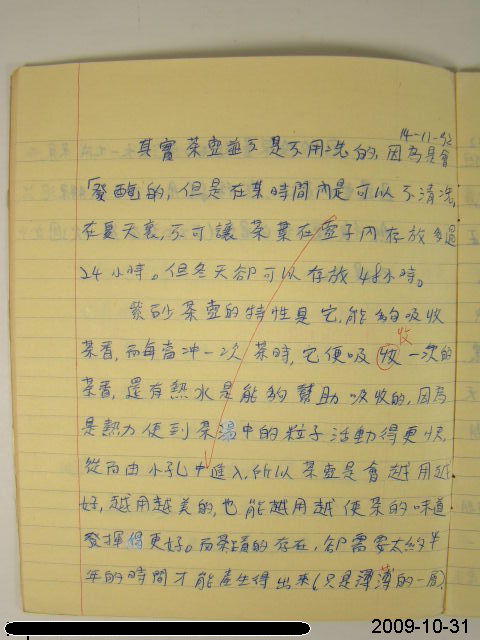 14-11-92
其實茶壺並不是不用洗的,因為是會
「發酏的,但是在某時間內是可以不清洗,
在夏天裏,不可讓茶葉在壺子內存放多過
24小時。但冬天卻可以存放48小時。
紫砂茶壺的特性是它能夠吸收
茶香,而每當冲一次茶時,它便吸收一次的
收
茶香,還有熱水是能夠幫助吸收的,因為
是熱力使到茶湯中的粒子活動得更快,
從而由小孔中進入,所以茶壺是會越用越
好,越用越美的,也能越用越使茶的味道
發揮得更好。而茶的存在,卻需要大約半
年的時間才能產生得出來(只是薄薄的一層)
2009-10-31